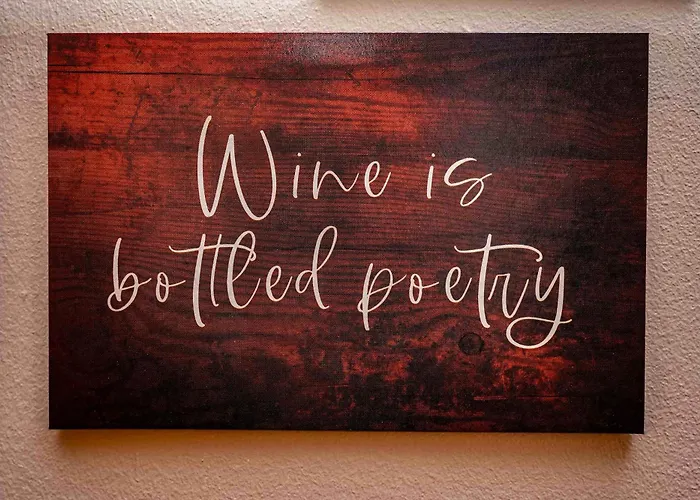 Wine is
bottled poetry